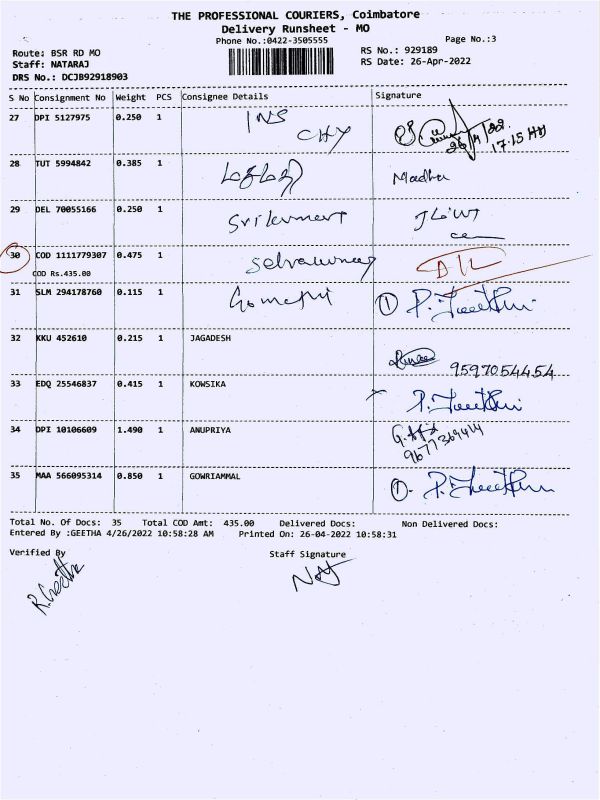 THE PROFESSIONAL COURIERS, Coimbatore
Delivery Runsheet - MO
Phone No.:0422-3505555
Page No.:3
Route: BSR RD MO
Staff: NATARAJ
DRS No.: DCJB92918903
RS No.: 929189
RS Date: 26-Apr-2022
S No Consignment No Weight PCS Consignee Details Signature
27 DPI 5127975 0.250 1 INS CHY 26/4/22 17.15
28 TUT 5994842 0.385 1 Madhu
29 DEL 70055166 0.250 1 Srikumar
30 COD 1111779307 0.475 1
COD Rs.435.00
31 SLM 294178760 0.115 1 Gomathi 1
32 KKU 452610 0.215 1 JAGADESH 9597054454
33 EDQ 25546837 0.415 1 KOWSIKA
34 DPI 10106609 1.490 1 ANUPRIYA 9677369414
35 MAA 566095314 0.850 1 GOWRIAMMAL 1
Total No. Of Docs: 35 Total COD Amt: 435.00 Delivered Docs: Non Delivered Docs:
Entered By :GEETHA 4/26/2022 10:58:28 AM Printed On: 26-04-2022 10:58:31
Verified By Staff Signature
R. Geetha